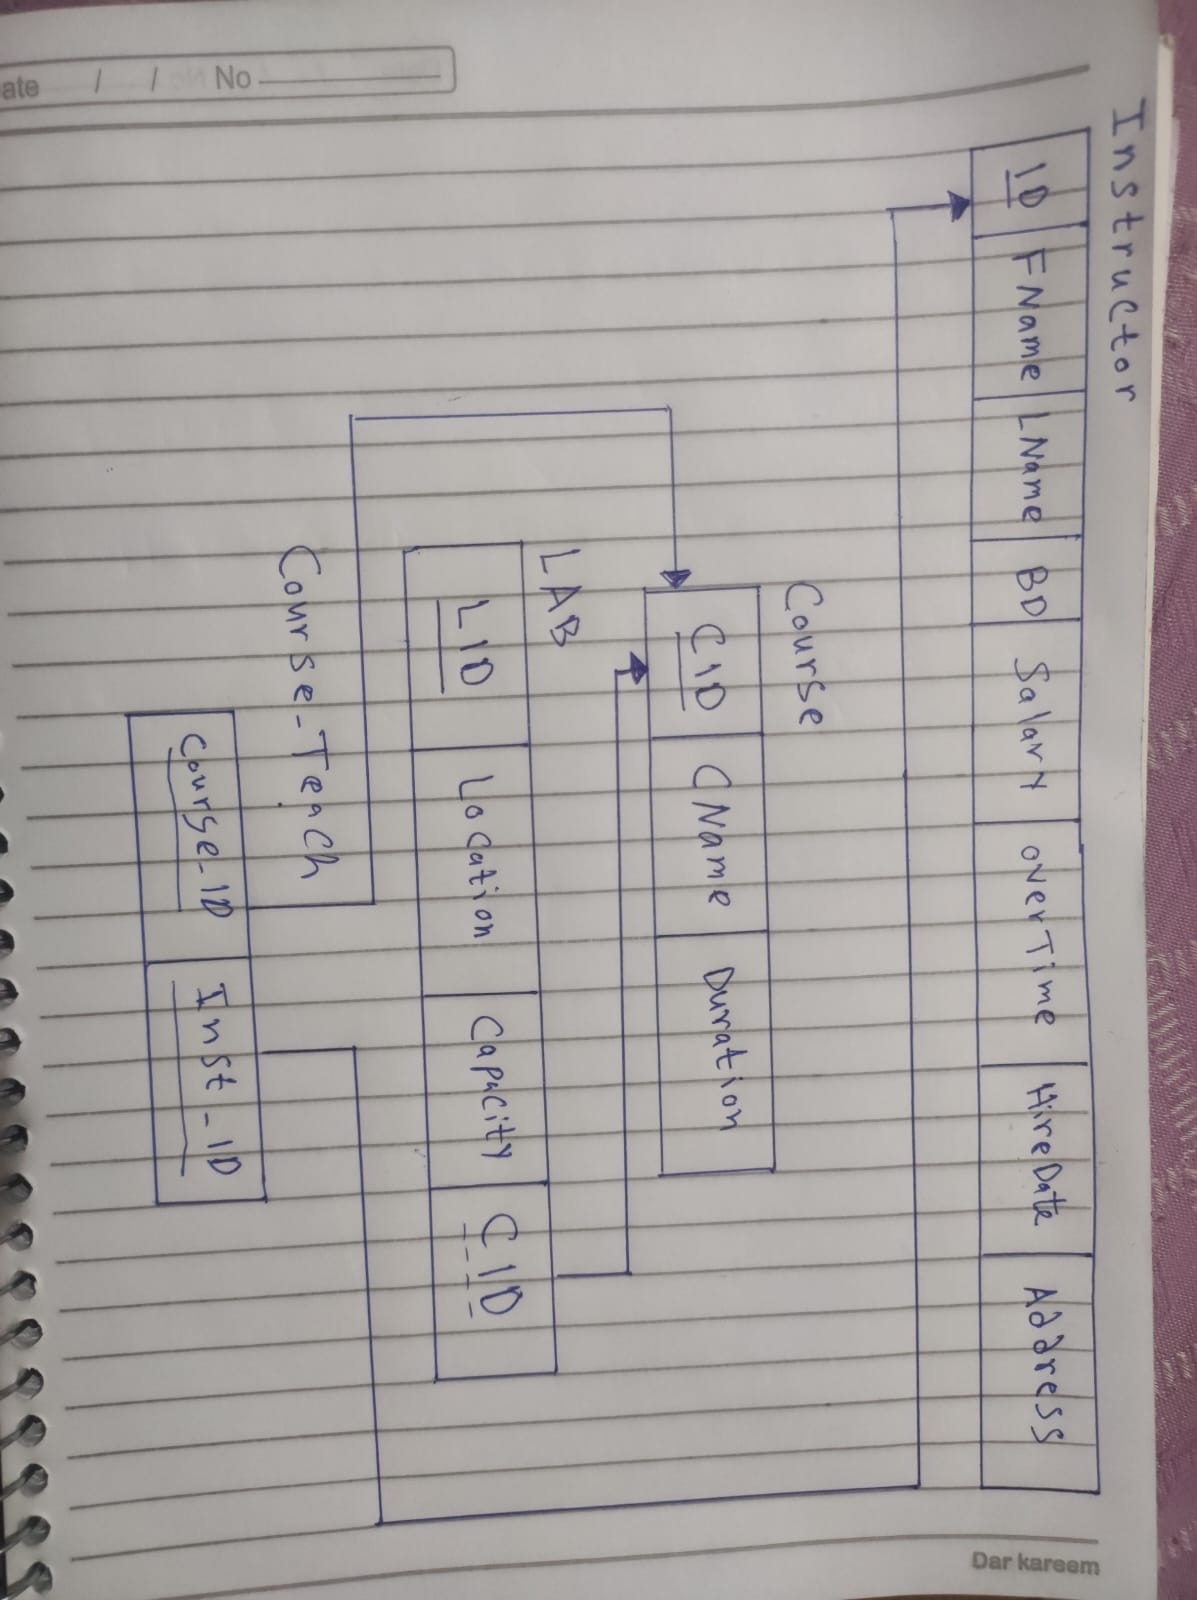 Instructor
ID FName LName BD Salary overTime HireDate Address
Course
CID CName Duration
LAB
LID Location Capacity CID
Course_Teach
Course_ID Inst_ID
Dar kareem
No
ate / /